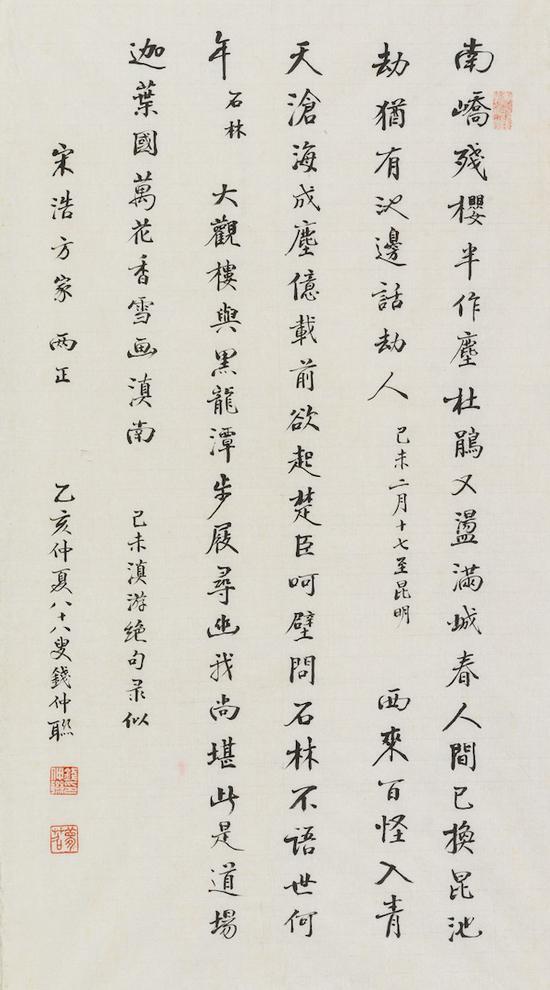 南嶠殘櫻半作塵杜鵑又盪滿城春人間已換昆池
劫猶有池邊話劫人 己未二月十七至昆明 西來百怪入青
天滄海成塵億載前欲起楚臣呵壁問石林不語世何
年 石林 大觀樓與黑龍潭步屐尋幽我尚堪此是道場
迦葉國萬花香雪画滇南 己未滇游绝句录似
宋浩方家 两正 乙亥仲夏八十八叟錢仲聯
夢苕